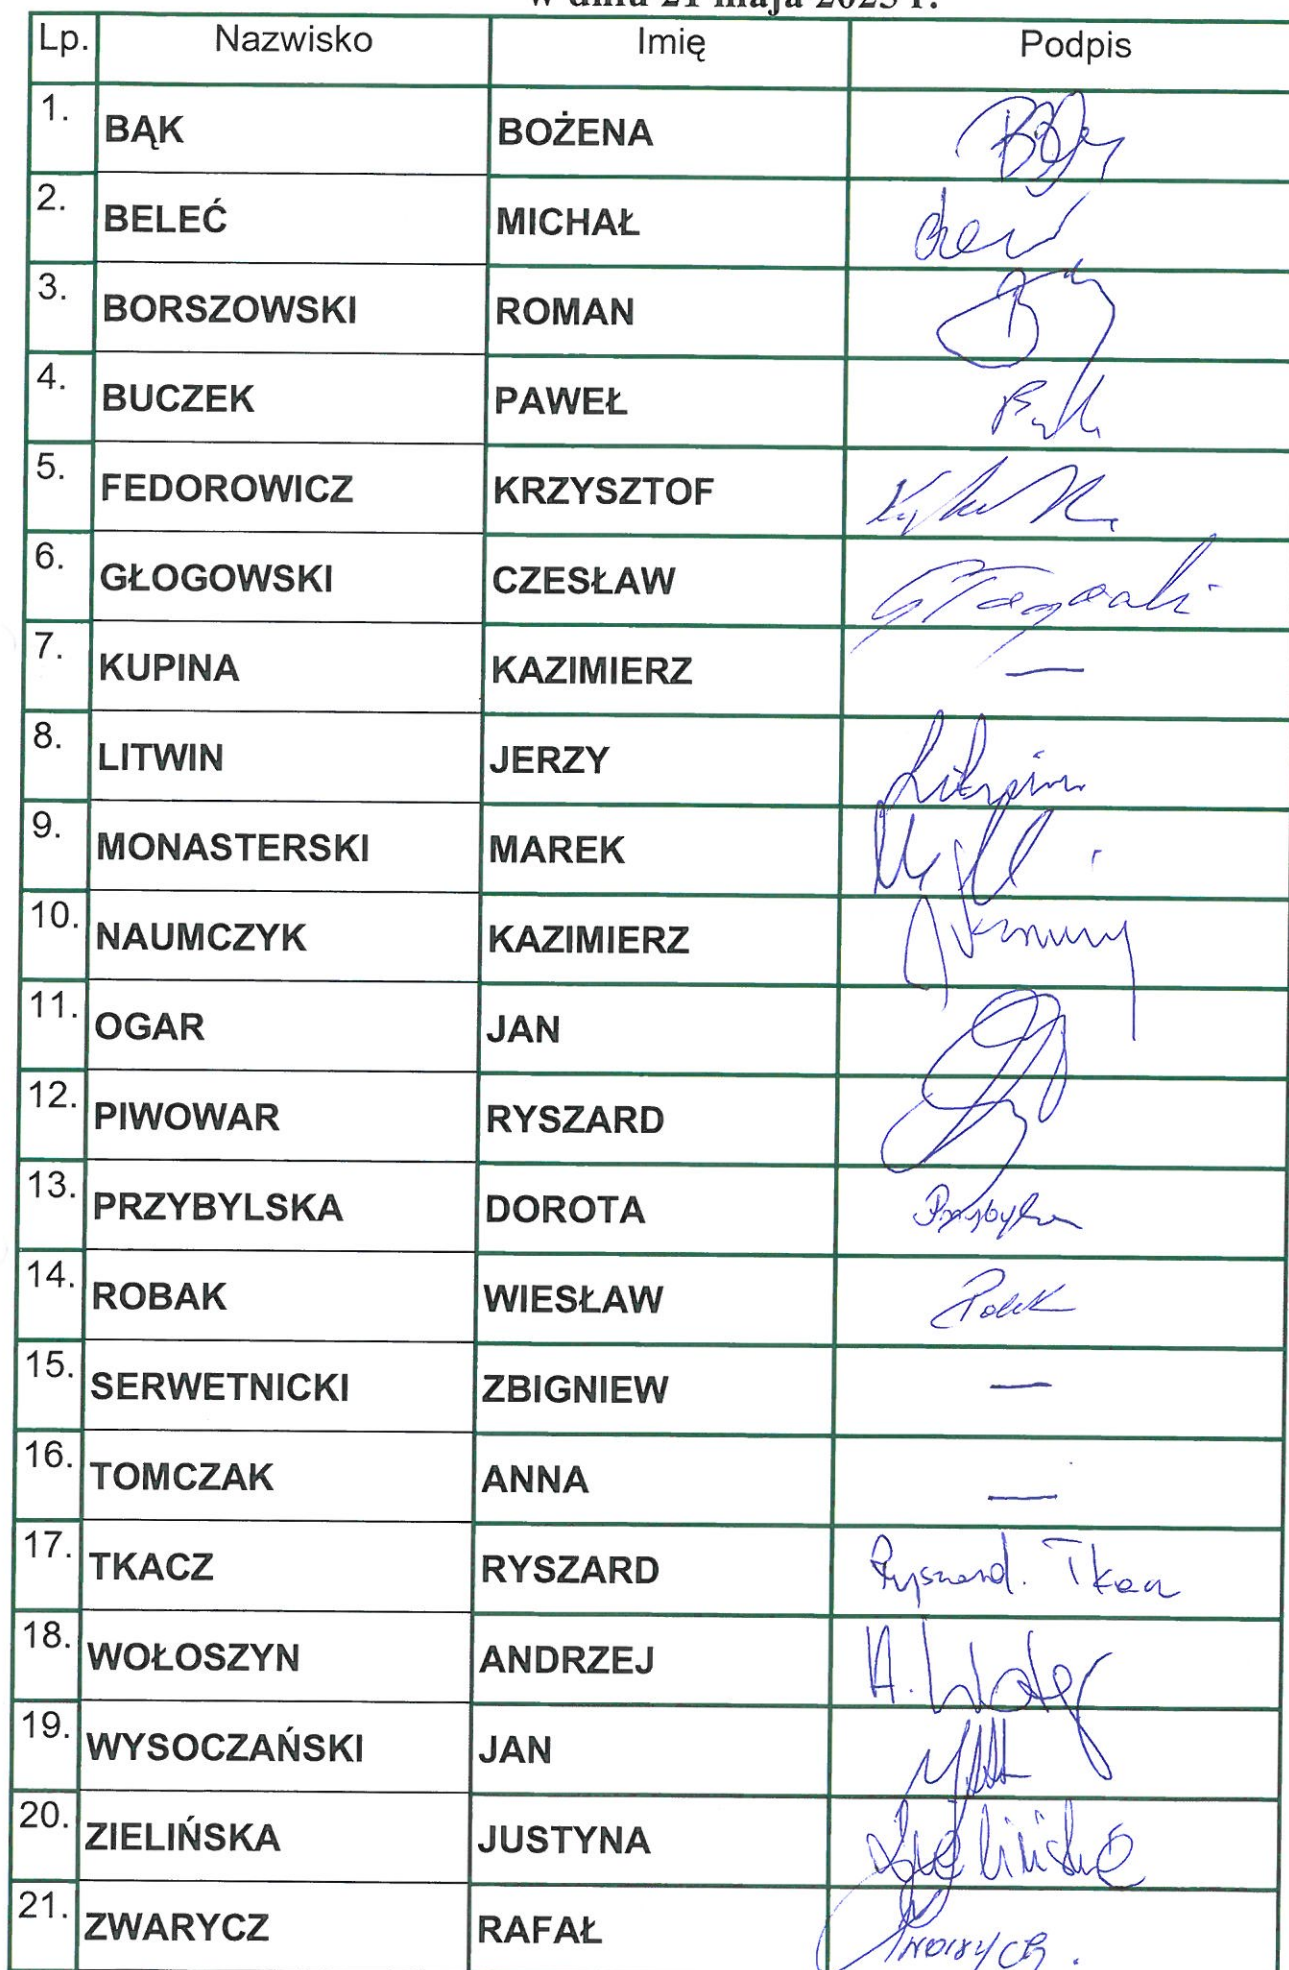 w dniu 21 maja 2025 r.
Lp. Nazwisko Imię Podpis
1. BĄK BOŻENA
2. BELEĆ MICHAŁ
3. BORSZOWSKI ROMAN
4. BUCZEK PAWEŁ
5. FEDOROWICZ KRZYSZTOF
6. GŁOGOWSKI CZESŁAW Głogowski
7. KUPINA KAZIMIERZ —
8. LITWIN JERZY Litwin
9. MONASTERSKI MAREK
10. NAUMCZYK KAZIMIERZ
11. OGAR JAN
12. PIWOWAR RYSZARD
13. PRZYBYLSKA DOROTA
14. ROBAK WIESŁAW
15. SERWETNICKI ZBIGNIEW —
16. TOMCZAK ANNA —
17. TKACZ RYSZARD Ryszard. Tkacz
18. WOŁOSZYN ANDRZEJ
19. WYSOCZAŃSKI JAN
20. ZIELIŃSKA JUSTYNA Zielińska
21. ZWARYCZ RAFAŁ